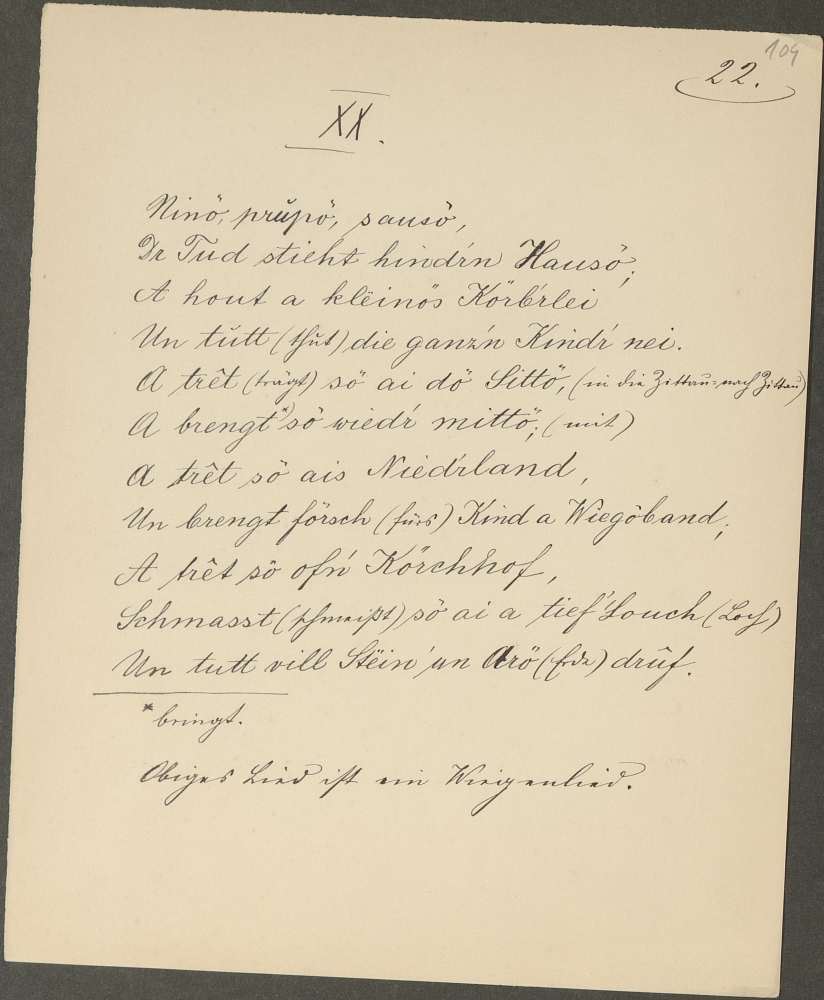 104
22.
XX.
Ninö, prŭpö, sausö,
Dr Tud stieht hindr'n Hausö;
A hout a klëinös Körbr'lei
Un tŭtt (thut) die ganz'n Kindr' nei.
A trêt (trägt) sö ai dö Sittö, (in die Zittau = nach Zittau)
A brengt*) sö wiedr' mittö; (mit)
A trêt sö ais Niedr'land,
Un brengt försch (fürs) Kind a Wiegöband;
A trêt sö ofn' Körchhof,
Schmasst (schmeißt) sö ai a tief' Louch (Loch)
Un tutt vill Stëin' un Arö (Erde) drûf.
* bringt.
Obiges Lied ist ein Wiegenlied.